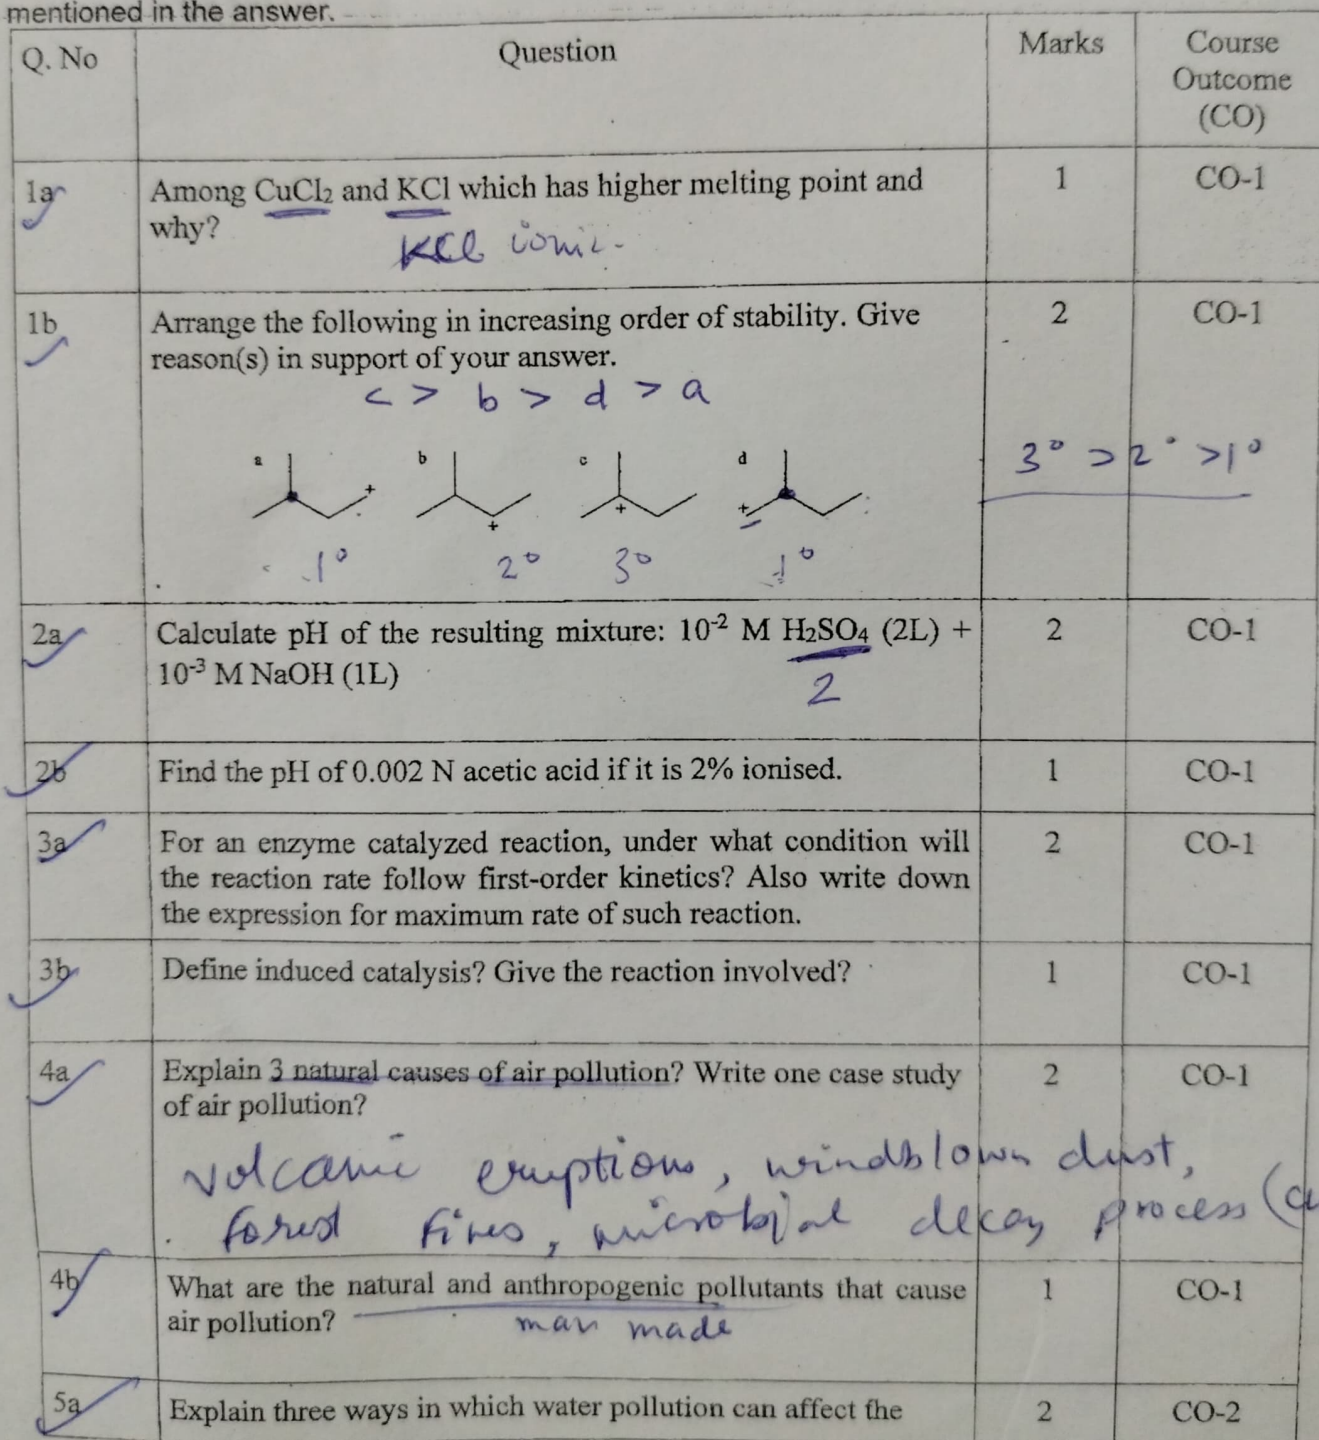 mentioned in the answer.
Q. No Question Marks Course
Outcome
(CO)
1a Among CuCl₂ and KCl which has higher melting point and 1 CO-1
why?
KCl ionic.
1b Arrange the following in increasing order of stability. Give 2 CO-1
reason(s) in support of your answer.
c > b > d > a
3° > 2° > 1°
a b c d
+ + + +
1° 2° 3° 1°
2a Calculate pH of the resulting mixture: 10⁻² M H₂SO₄ (2L) + 2 CO-1
10⁻³ M NaOH (1L)
2
2b Find the pH of 0.002 N acetic acid if it is 2% ionised. 1 CO-1
3a For an enzyme catalyzed reaction, under what condition will 2 CO-1
the reaction rate follow first-order kinetics? Also write down
the expression for maximum rate of such reaction.
3b Define induced catalysis? Give the reaction involved? 1 CO-1
4a Explain 3 natural causes of air pollution? Write one case study 2 CO-1
of air pollution?
volcanic eruptions, windblown dust,
forest fires, microbial decay process (
4b What are the natural and anthropogenic pollutants that cause 1 CO-1
air pollution?
man made
5a Explain three ways in which water pollution can affect the 2 CO-2